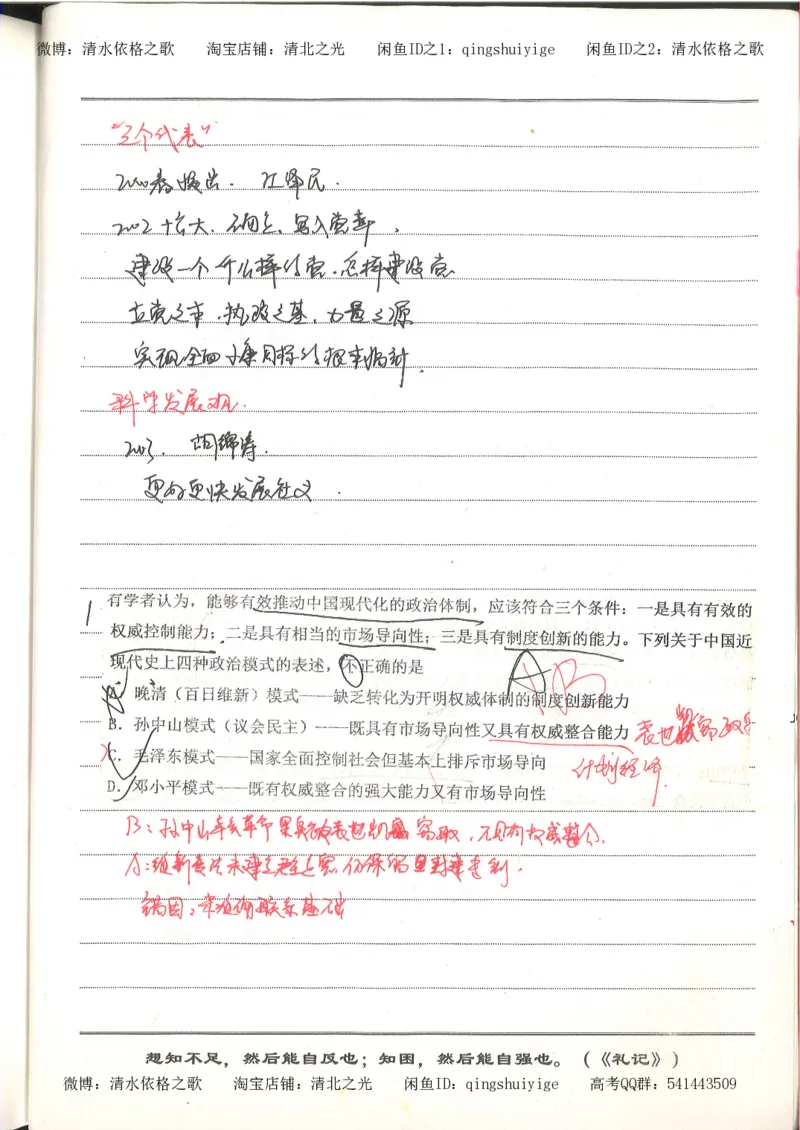 微博：清水依格之歌 淘宝店铺：清北之光 闲鱼ID之1：qingshuiyige 闲鱼ID之2：清水依格之歌
“三个代表”
2000春提出．江泽民．
2002 十六大．确立、写入党章．
建设一个什么样的党．怎样建设党
立党之本．执政之基．力量之源
实现全面小康目标的根本指针．
科学发展观．
2003．胡锦涛．
更好更快发展社义．
1 有学者认为，能够有效推动中国现代化的政治体制，应该符合三个条件：一是具有有效的
权威控制能力；二是具有相当的市场导向性；三是具有制度创新的能力。下列关于中国近
现代史上四种政治模式的表述，不正确的是
A B
A．晚清（百日维新）模式——缺乏转化为开明权威体制的制度创新能力
B．孙中山模式（议会民主）——既具有市场导向性又具有权威整合能力
C．毛泽东模式——国家全面控制社会但基本上排斥市场导向
计划经济．
D．邓小平模式——既有权威整合的强大能力又有市场导向性
B：孙中山辛亥革命果实被袁世凯窃取，不具有权威整合．
A：维新变法未建立君主立宪，仍保的是封建专制．
错因：
想知不足，然后能自反也；知困，然后能自强也。（《礼记》）
微博：清水依格之歌 淘宝店铺：清北之光 闲鱼ID：qingshuiyige 高考QQ群：541443509